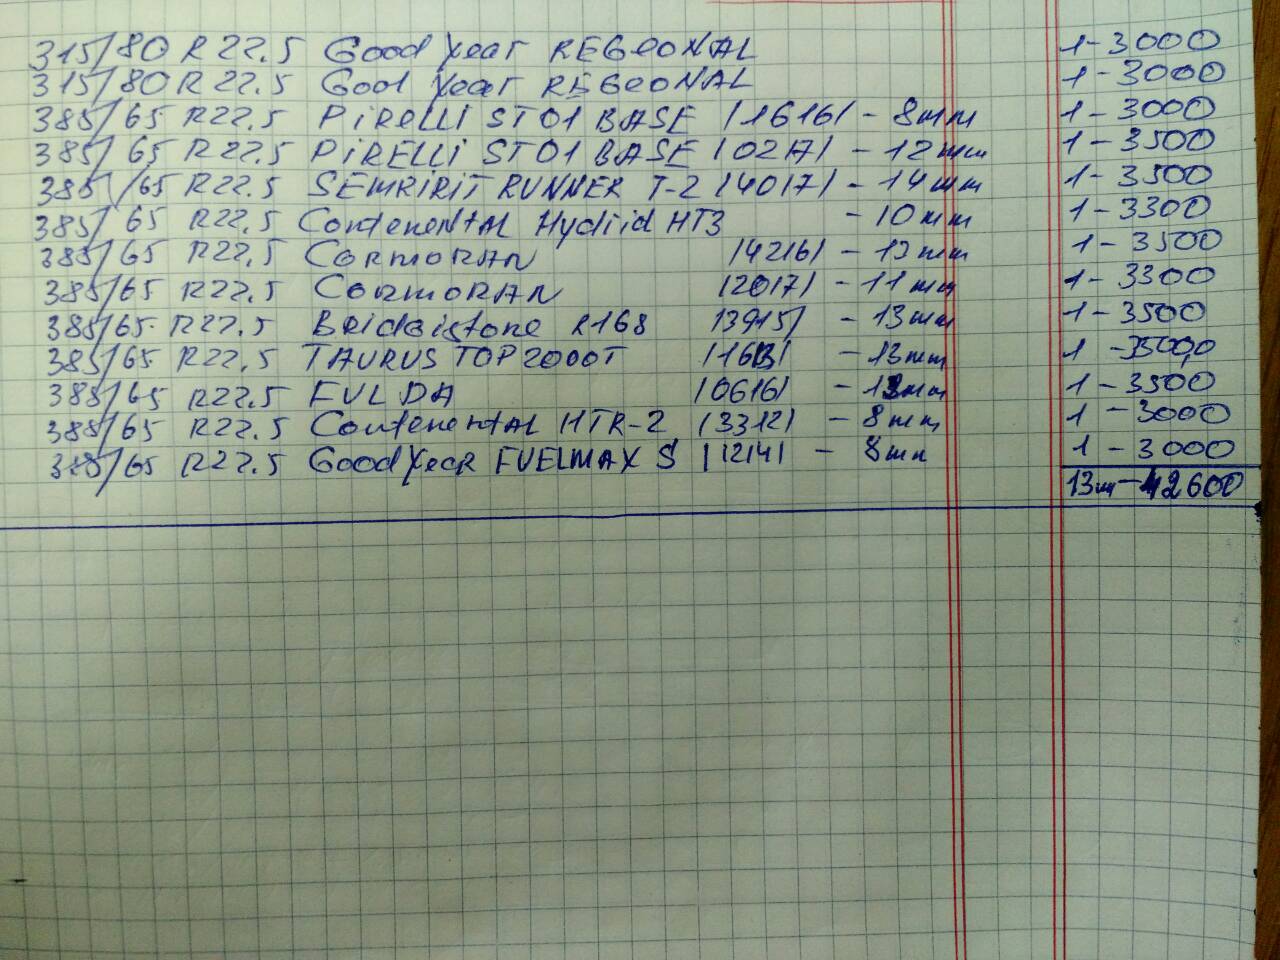 315/80 R 22.5 Good year REGEONAL 1-3000
315/80 R 22.5 Good year REGEONAL 1-3000
385/65 R22.5 PiRelli ST01 BASE /1616/ - 8mm 1-3000
385/65 R22.5 PiRELLi ST01 BASE /0217/ - 12mm 1-3500
385/65 R22.5 SEMRIRIT RUNNER T-2 /4017/ - 14mm 1-3500
385/65 R22.5 ContenentAL Hydiid HT3 - 10mm 1-3300
385/65 R22.5 CORMORAN /4216/ - 13mm 1-3500
385/65 R22.5 CORMORAN /2017/ - 11mm 1-3300
385/65 R22.5 Beidgistone R168 /3915/ - 13mm 1-3500
385/65 R22.5 TAURUS TOP 2000T - 13mm 1-3500
385/65 R22.5 FULDA /0616/ mm 1-3500
385/65 R22.5 ContenentAL HTR-2 /3312/ - 8mm 1-3000
385/65 R22.5 GoodYeaR FUELMAX S /1214/ - 8mm 1-3000
13ш-42600